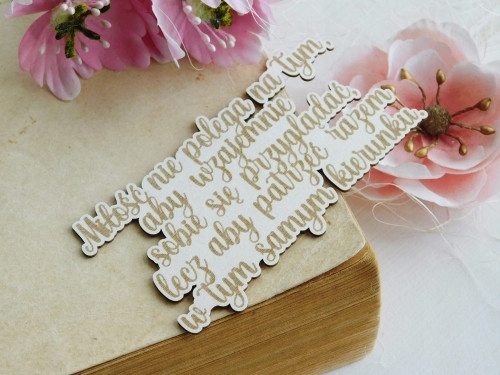 Miłość nie polega na tym,
aby wzajemnie
sobie się przyglądać
lecz aby patrzeć razem
w tym samym kierunku.